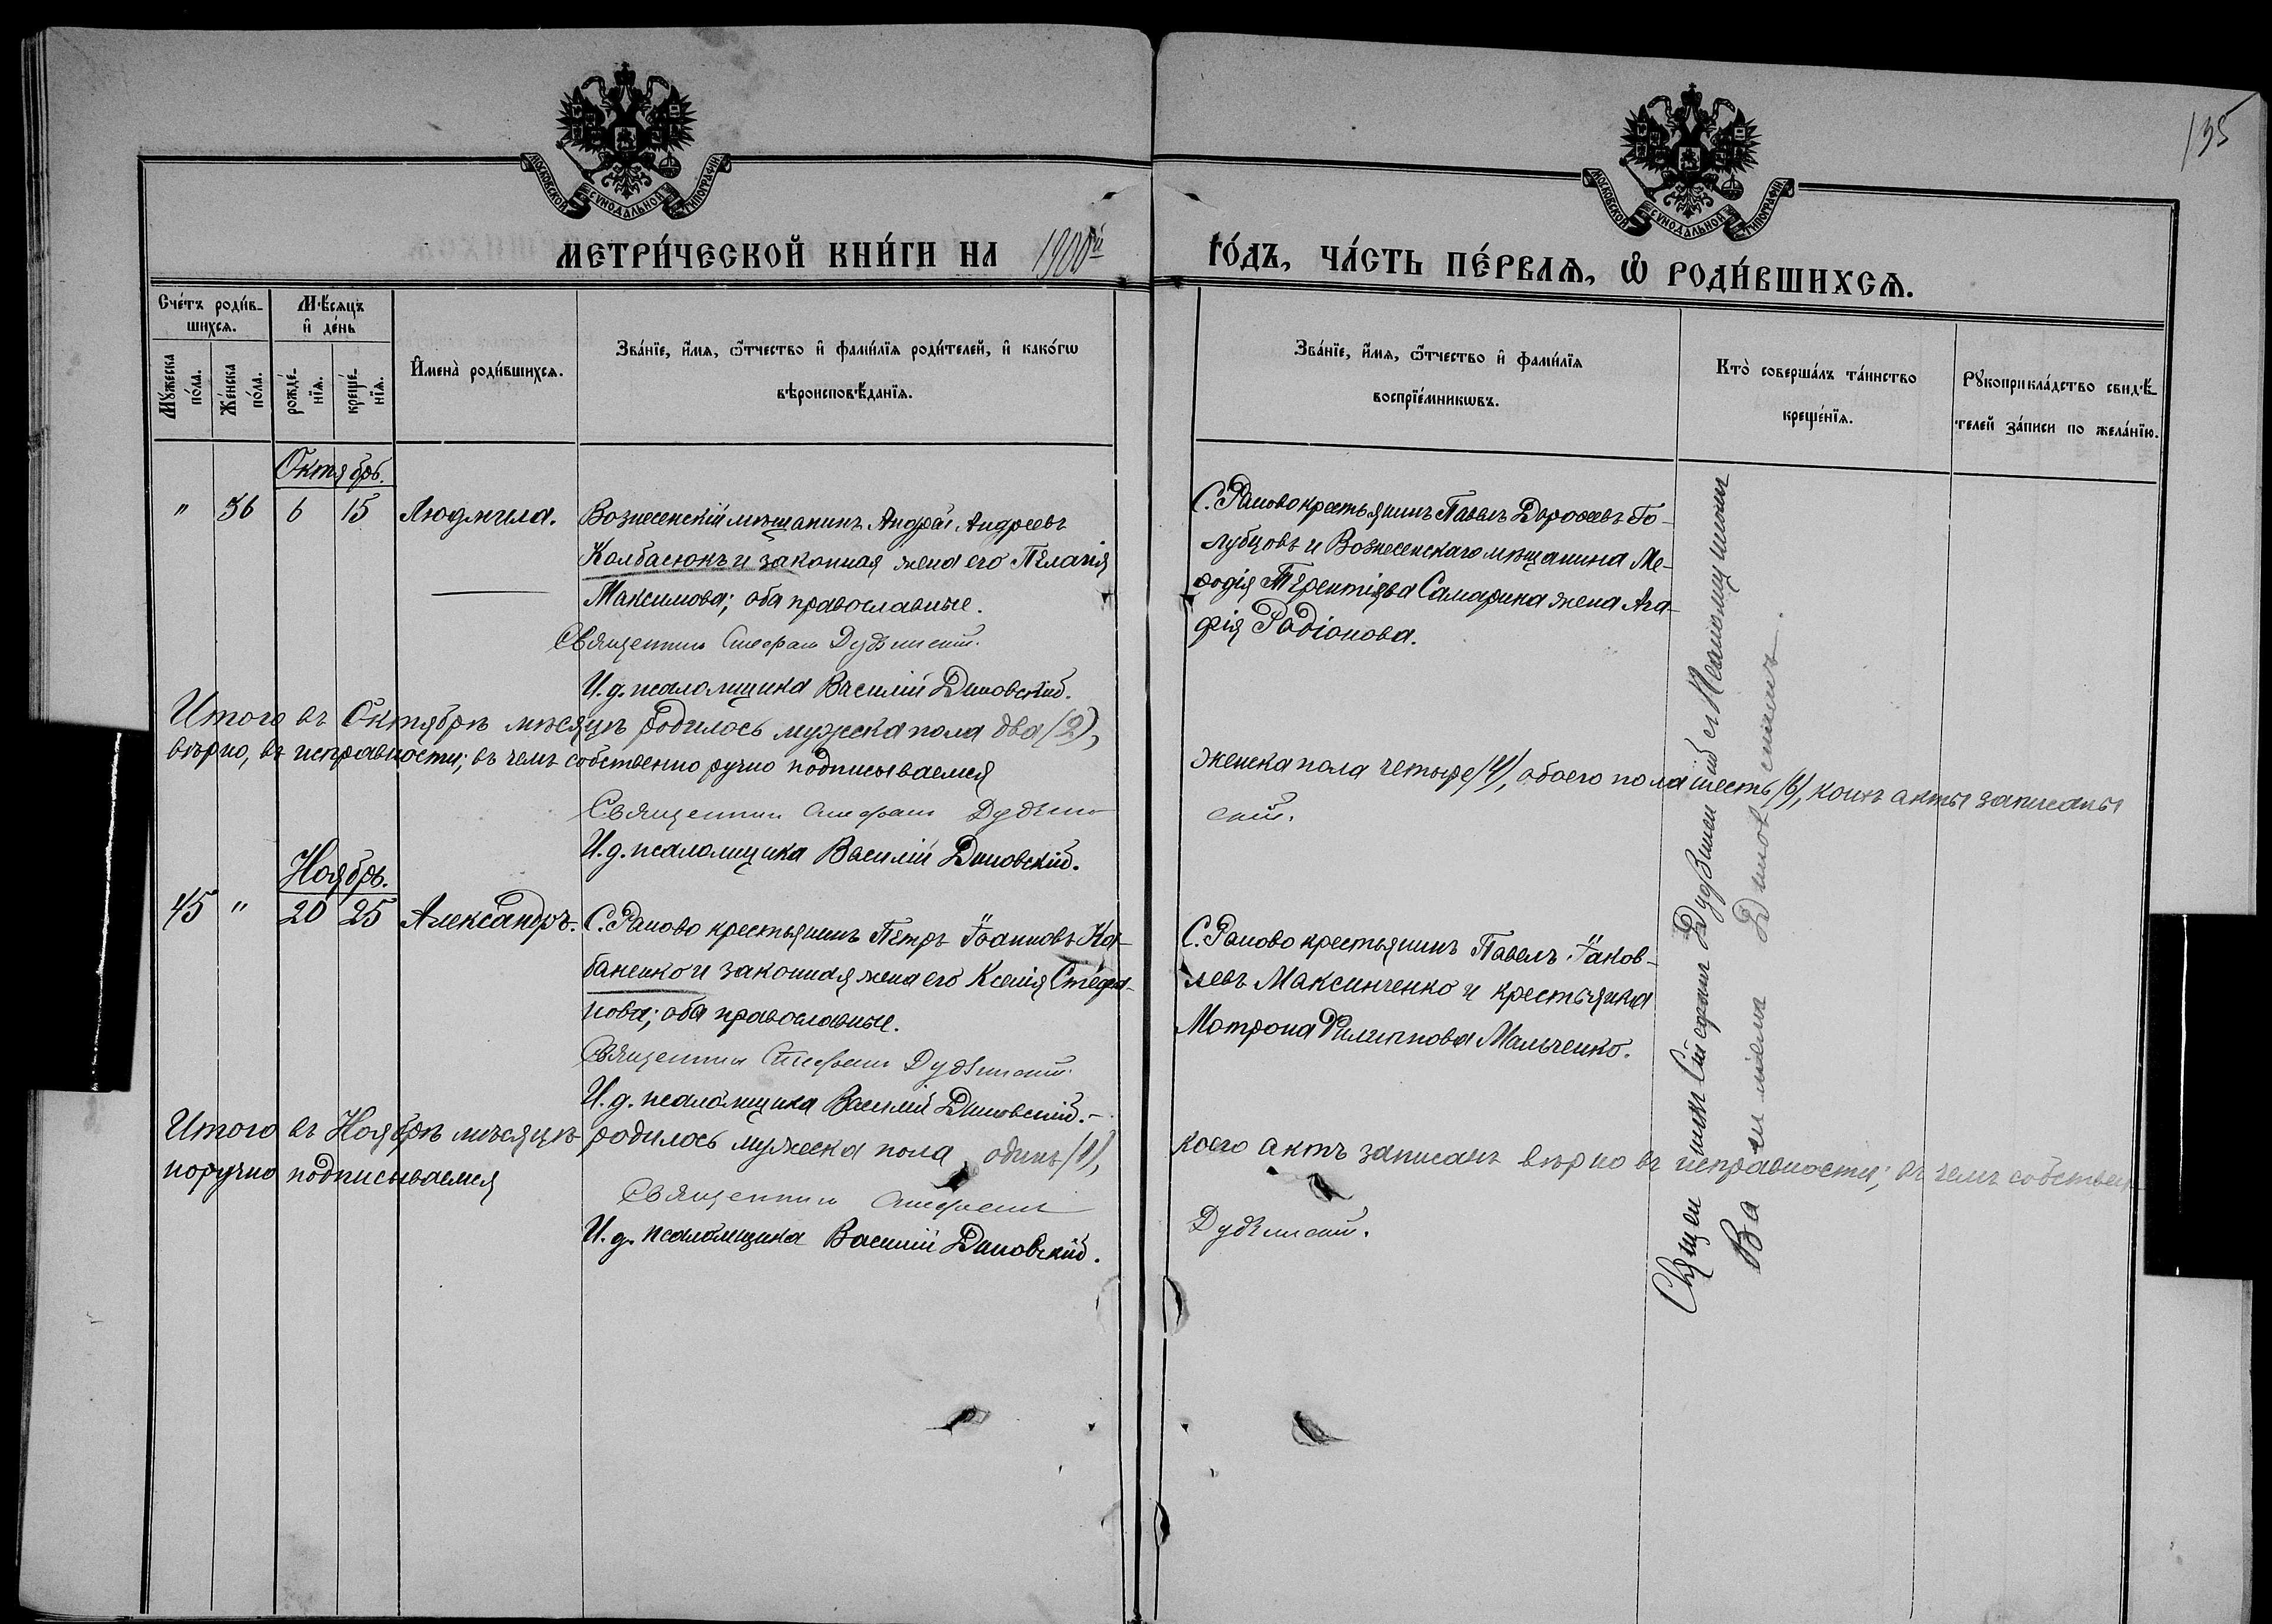 135
МОСКОВСКОЙ СѴНОДАЛЬНОЙ ТИПОГРАФІИ
МОСКОВСКОЙ СѴНОДАЛЬНОЙ ТИПОГРАФІИ
МЕТРИ́ЧЕСКОЙ КНИ́ГИ НА 1900й ГО́ДЪ, ЧА́СТЬ ПЕ́РВАѦ, Ѡ҆ РОДИ́ВШИХСѦ.
Сче́тъ роди́в-
шихсѧ.
Мꙋ́жеска по́ла.
Же́нска по́ла.
Мѣ́сѧцъ
и҆ де́нь
рожде́-нїѧ.
креще́-нїѧ.
И҆мена̀ роди́вшихсѧ.
Зва́нїе, и҆́мѧ, ѻ҆́тчество и҆ фами́лїѧ роди́телей, и҆ како́гѡ
вѣроисповѣ́данїѧ.
Зва́нїе, и҆́мѧ, ѻ҆́тчество и҆ фами́лїѧ
воспрїе́мникѡвъ.
Кто̀ соверша́лъ та́инство
креще́нїѧ.
Рꙋкоприкла́дство свидѣ́-
телей за́писи по жела́нїю.
Октябрь.
" 36 6 15 Людмила.
Вознесенскій мѣщанинъ Андрей Андреевъ
Колбасюкъ и законная жена его Пелагія
Максимова; оба православные.
Священникъ Стефанъ Дудзинскій.
И. д. псаломщика Василій Диновскій.
С. Раково крестьянинъ Павелъ Дороѳеевъ Го-
лубцовъ и Вознесенскаго мѣщанина Ме-
ѳодія Терентіева Самарина жена Ага-
фія Родіонова.
Итого въ Октябрѣ мѣсяцѣ родилось мужеска пола два (2),
женска пола четыре (4), обоего пола шесть (6), коихъ акты записаны
вѣрно, въ исправности; въ чемъ собственно ручно подписываемся
Священникъ Стефанъ Дудзин-
скій.
И. д. псаломщика Василій Диновскій.
Ноябрь.
45 " 20 25 Александръ.
С. Раково крестьянинъ Петръ Іоанновъ Ка-
баненко и законная жена его Ксенія Стефа-
нова; оба православные.
Священникъ Стефанъ Дудзинскій.
И. д. псаломщика Василій Диновскій.
С. Раково крестьянинъ Павелъ Іаков-
левъ Максинченко и крестьянка
Матрона Филиппова Мальченко.
Священникъ Стефанъ Дудзинскій съ Псаломщикомъ
Василіемъ Диновскимъ.
Итого въ Ноябрѣ мѣсяцѣ родилось мужеска пола одинъ (1),
коего актъ записанъ вѣрно въ исправности; въ чемъ собствен-
норучно подписываемся
Священникъ Стефанъ
Дудзинскій.
И. д. псаломщика Василій Диновскій.